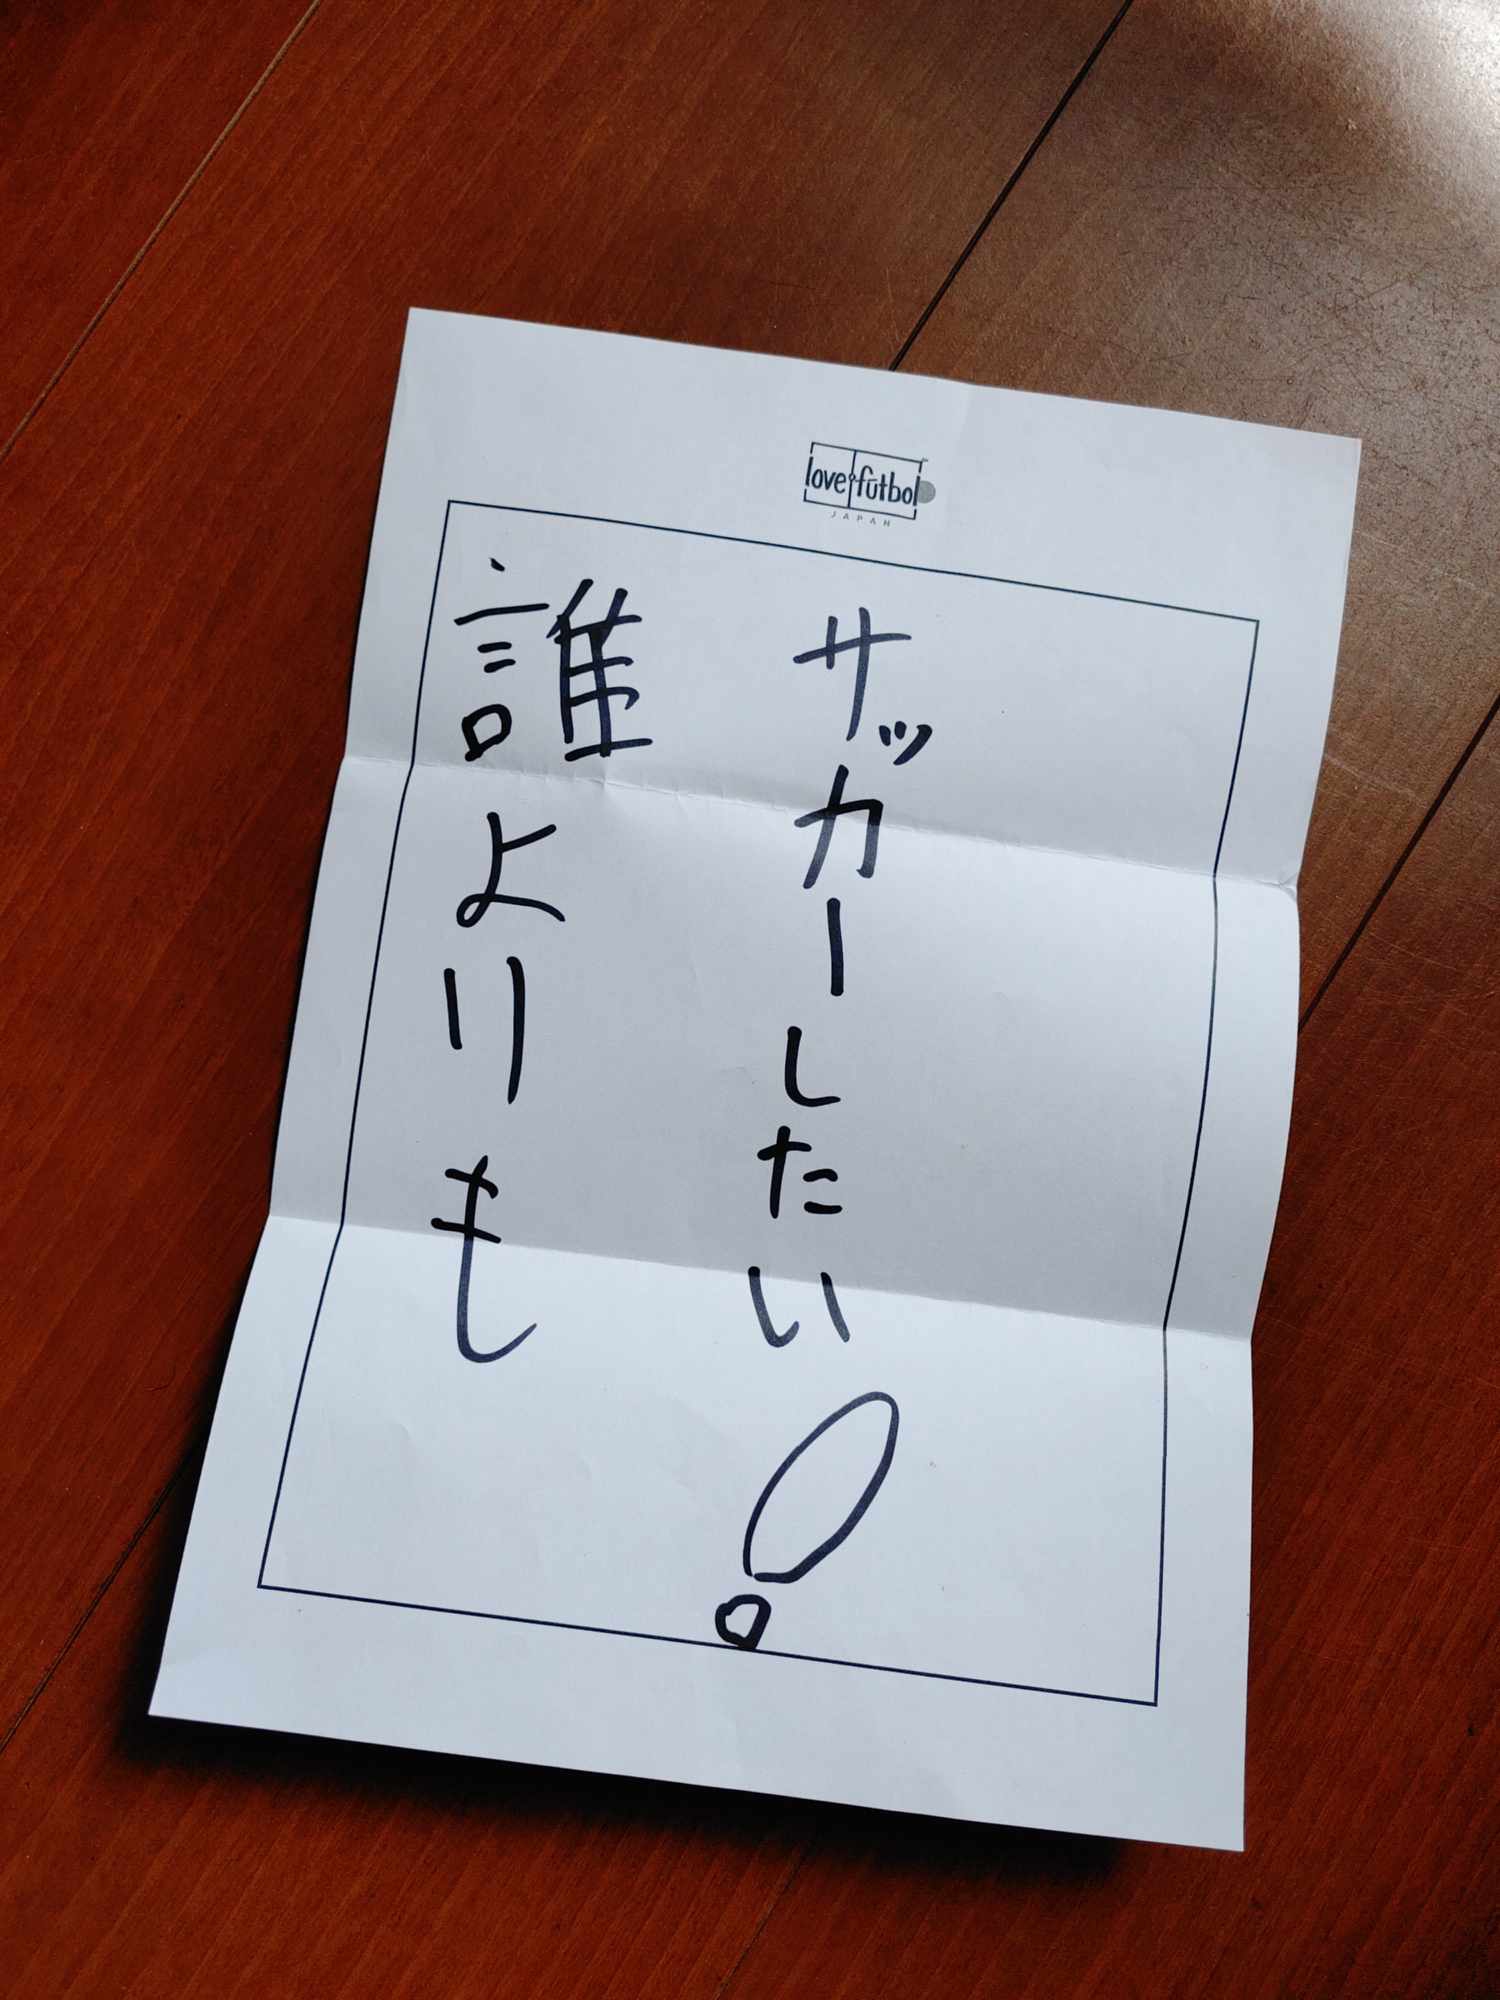 love.fútbol
JAPAN
サッカーしたい!
誰よりも